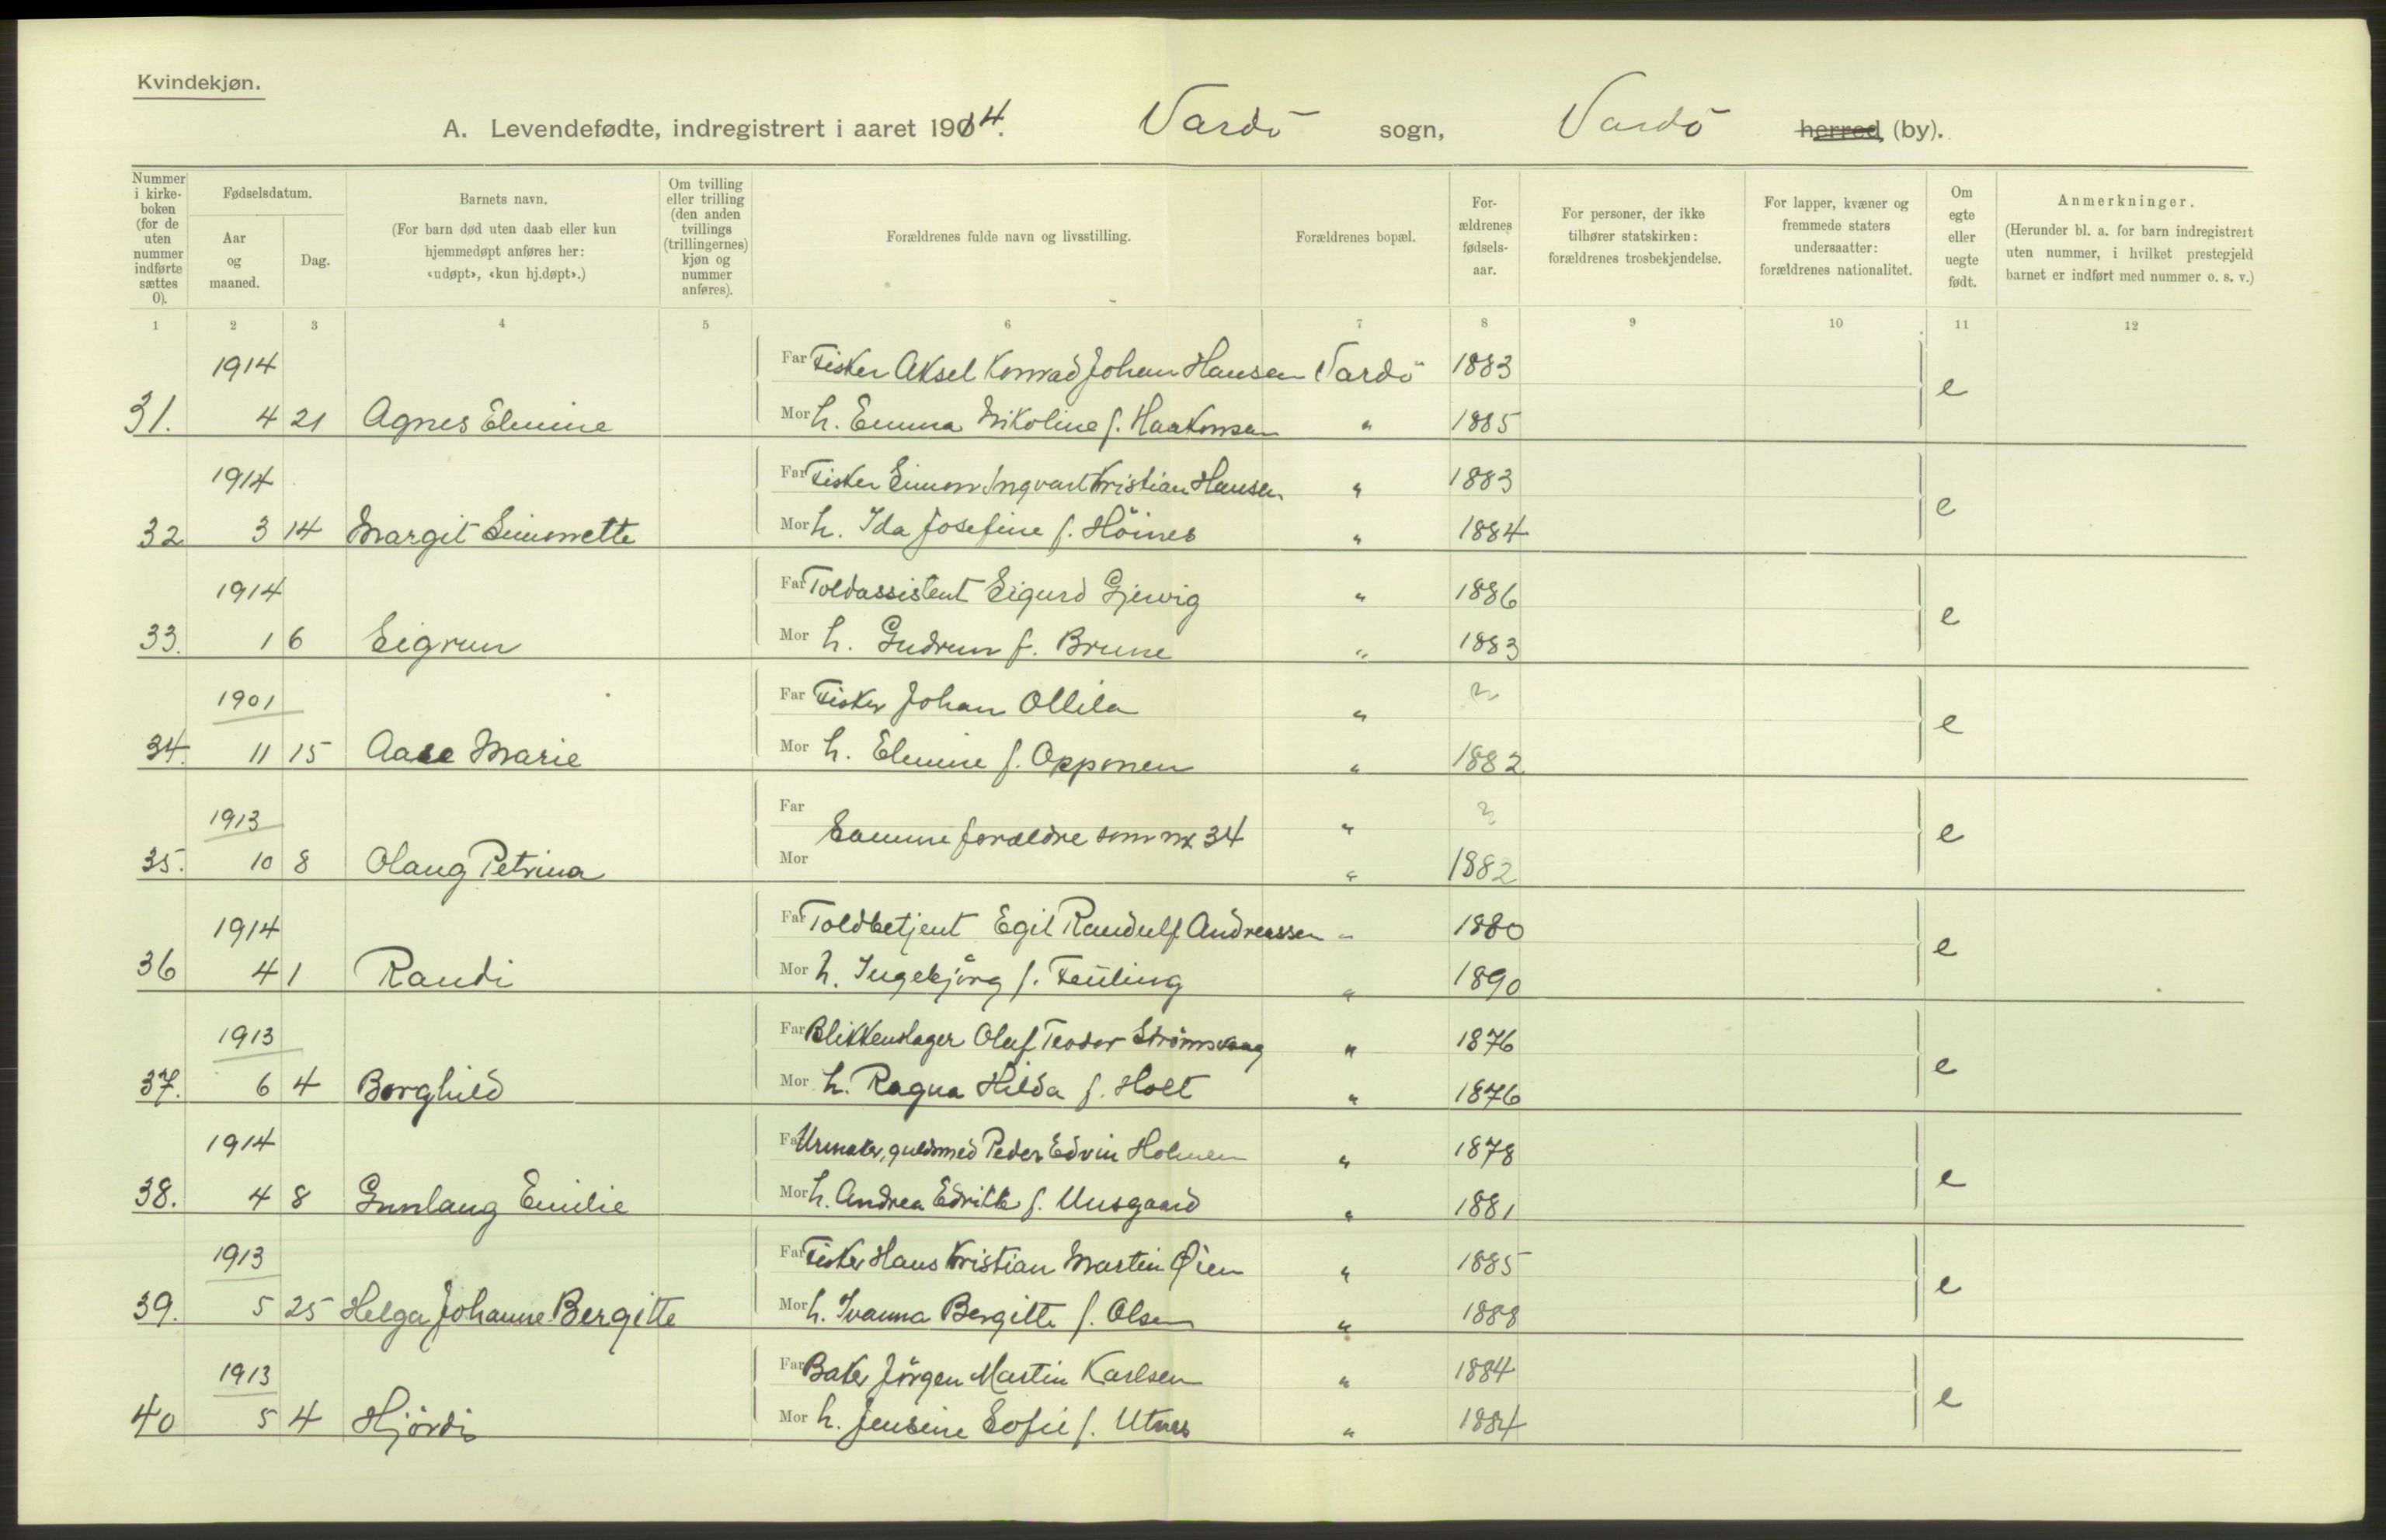 Kvindekjøn.
A. Levendefødte, indregistrert i aaret 1914. Vardö sogn, Vardö herred, (by).
Nummer i kirkeboken (for de uten nummer indførte sættes 0).
Fødselsdatum.
Aar og maaned.
Dag.
Barnets navn.
(For barn død uten daab eller kun hjemmedøpt anføres her: «udøpt», «kun hj.døpt».)
Om tvilling eller trilling (den anden tvillings (trillingernes) kjøn og nummer anføres).
Forældrenes fulde navn og livsstilling.
Forældrenes bopæl.
For-ældrenes fødsels-aar.
For personer, der ikke tilhører statskirken: forældrenes trosbekjendelse.
For lapper, kvæner og fremmede staters undersaatter: forældrenes nationalitet.
Om egte eller uegte født.
Anmerkninger.
(Herunder bl. a. for barn indregistrert uten nummer, i hvilket prestegjeld barnet er indført med nummer o. s. v.)
1 2 3 4 5 6 7 8 9 10 11 12
1914 Far Fisker Aksel Konrad Johan Hansen Vardö 1883 e
31. 4 21 Agnes Elmine Mor h. Emma Nikoline f. Haakonsen " 1885
1914 Far Fisker Simon Ingvart Kristian Hansen " 1883 e
32 3 14 Margit Simonette Mor h. Ida Josefine f. Höines " 1884
1914 Far Toldassistent Sigurd Gjervig " 1886 e
33. 1 6 Sigrun Mor h. Gudrun f. Brune " 1883
1901 Far Fisker Johan Ollila " ? e
34. 11 15 Aase Marie Mor h. Elmine f. Opponen " 1882
1913 Far Samme forældre som nr 34 " ? e
35. 10 8 Olaug Petrina Mor " 1882
1914 Far Toldbetjent Egil Randulf Andreassen " 1880 e
36 4 1 Randi Mor h. Ingebjörg f. " 1890
1913 Far Blikkenslager Olaf Teodor Strömsvaag " 1876 e
37. 6 4 Borghild Mor h. Ragna Hilda f. Holt " 1876
1914 Far Urmaker, guldsmed Peder Edvin Holmen " 1878 e
38. 4 8 Gunlaug Emilie Mor h. Andrea f. " 1881
1913 Far Fisker Hans Kristian Martin Øien " 1885 e
39. 5 25 Helga Johanne Bergitte Mor h. Ivanna Bergitte f. Olsen " 1888
1913 Far Baker Jörgen Martin Karlsen " 1884 e
40 5 4 Hjördis Mor h. Jensine Sofie f. Utnes " 1884